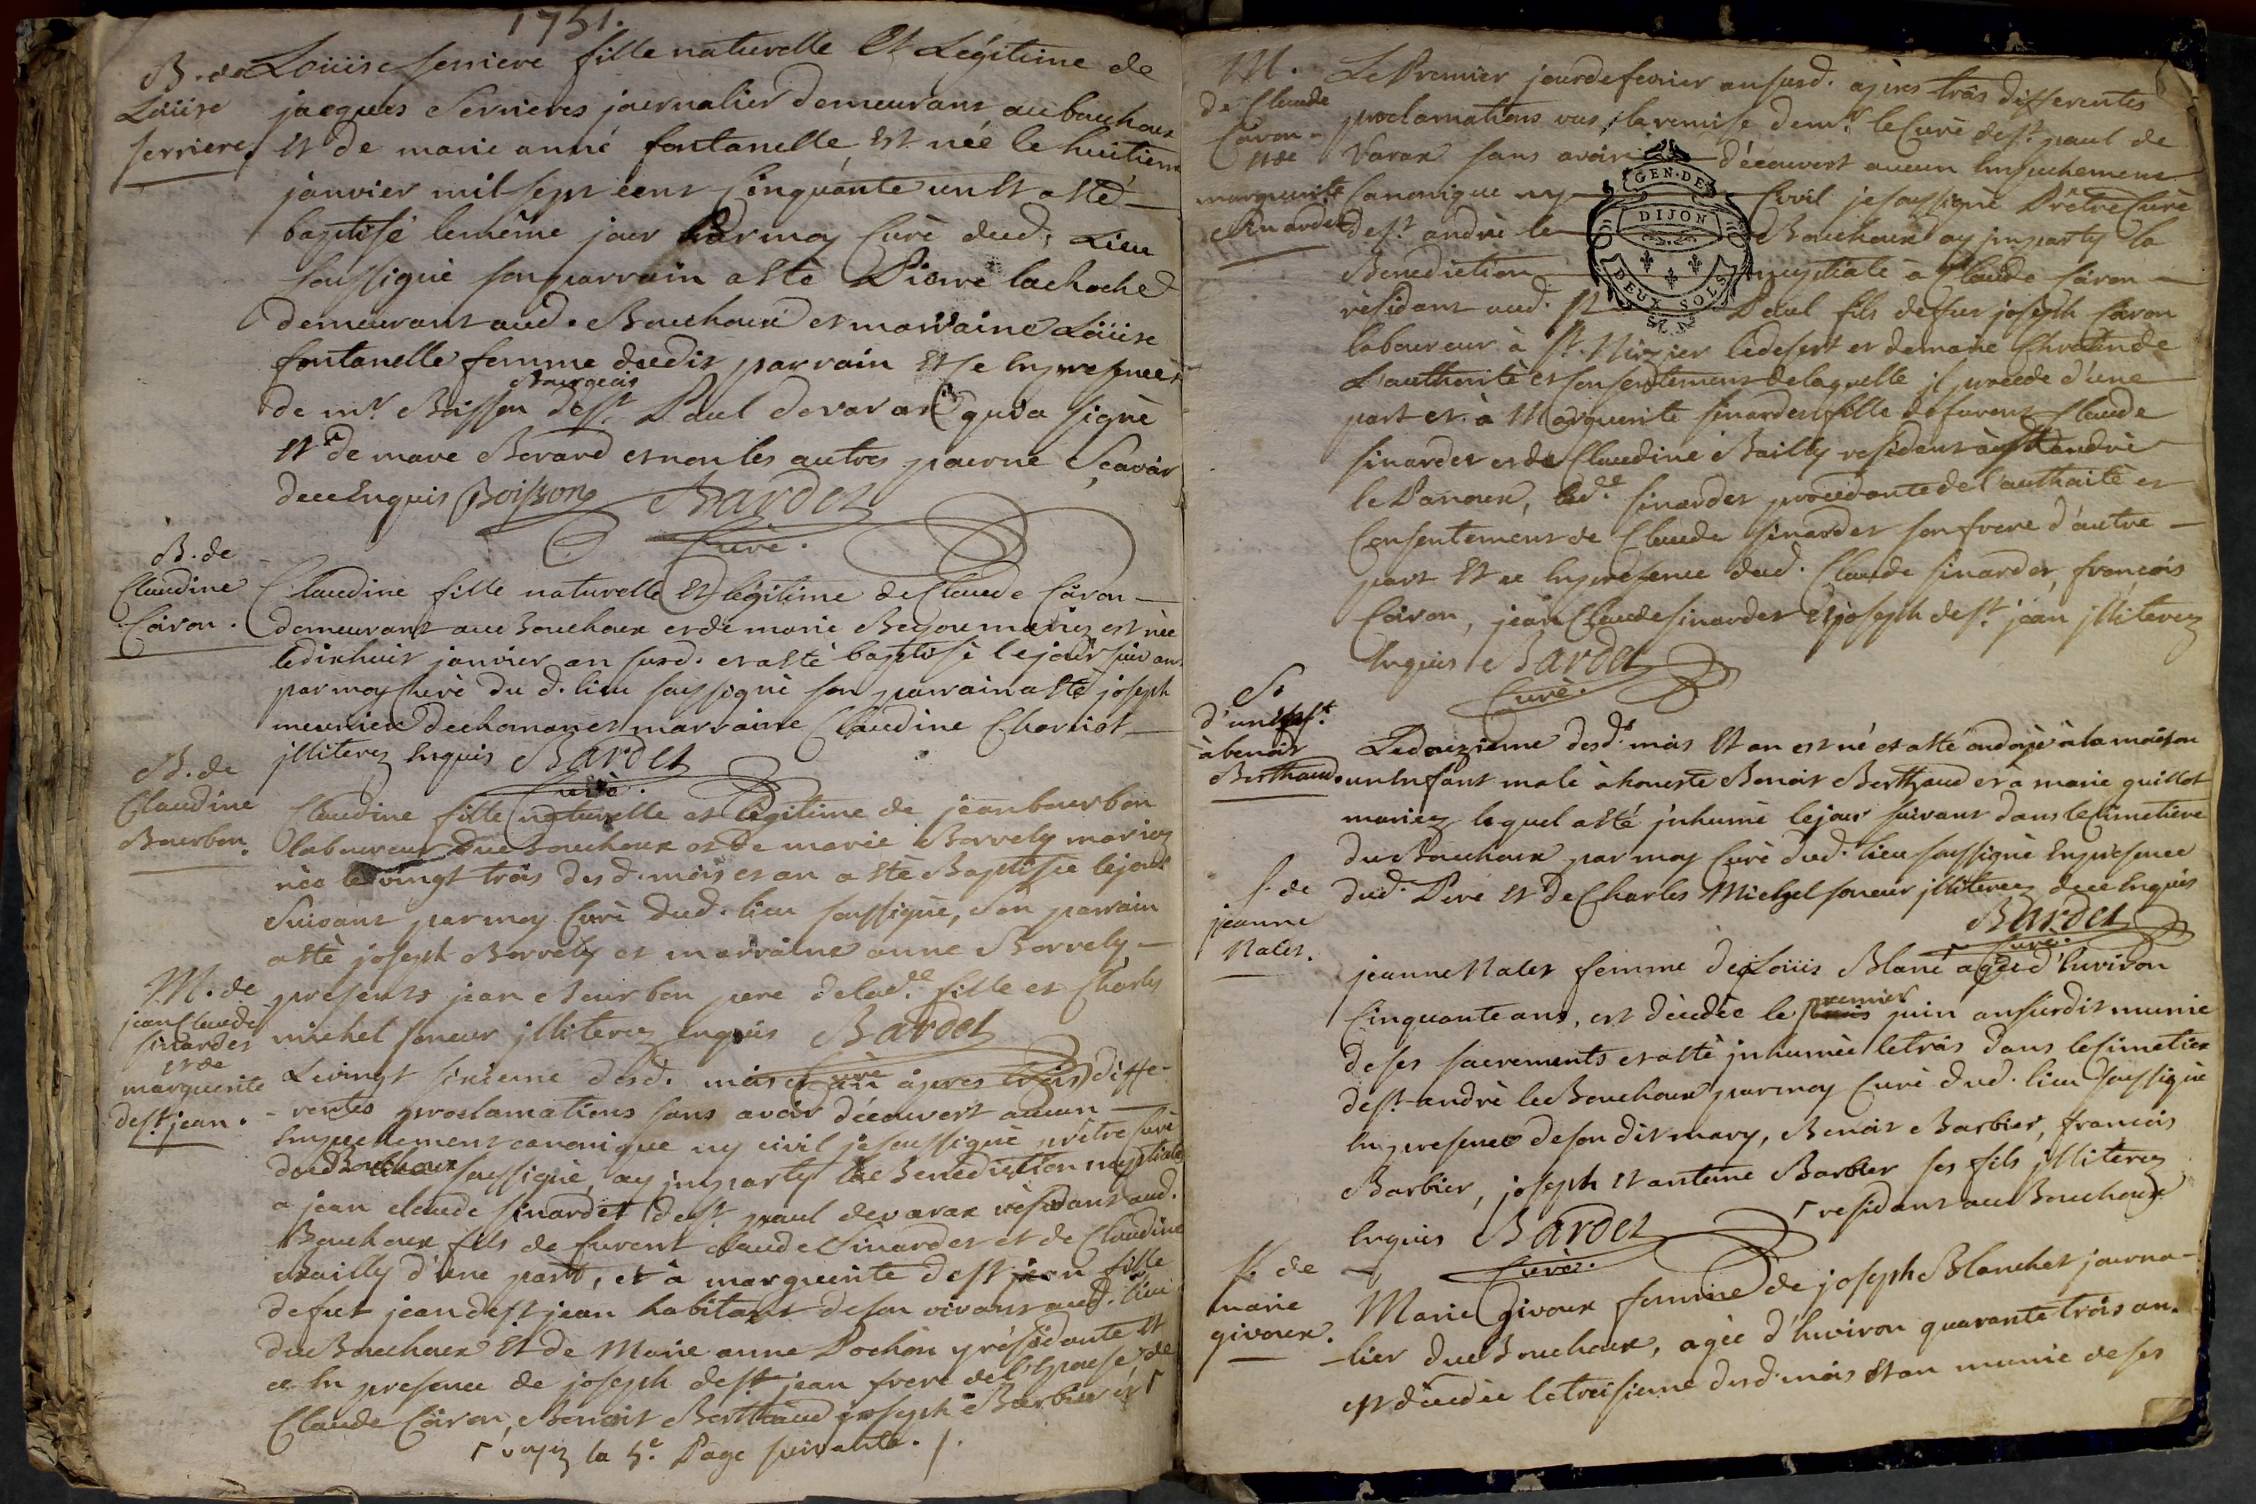 1751.
B. de
Loüise
serriere.
Loüise serriere fille naturelle Et Légitime de
jacques Serrieres journalier demeurant au bouchoux
et de marie anné fontanelle, est née le huitieme
janvier mil sept cent Cinquante un Et a Eté
baptisé le même jour par moy Curè dud. Lieu
soussigné son parrain a Eté Pierre lachoche
demeurant aud. Bouchoux et marraine Loüise
fontanelle femme dudit parrain Et se En presence
de mr. Boisson Bourgeois de st. Paul de varax qui a signè
et de marc Berard et non les autres pour ne Sçavoir
de ce Enquis Boisson Bardet
Curé.
B. de
Claudine
Cairon.
Claudine fille naturelle Et légitime de Claude Cairon
demeurant au Bouchoux et de marie Begou mariez est née
le dixhuit janvier an susd. et a Eté baptisé le jour suivant
par moy Curè du d. lieu soussignè son parrain a Eté joseph
meunier et marraine Claudine Charliot
jlliterez Enquis Bardet
Curé.
B. de
Claudine
Bourbon.
Claudine fille naturelle et légitime de jean bourbon
laboureur du Bouchoux et de marie Borrely mariez
née le vingt trois desd. mois et an a Eté Baptisée le jour
Suivant par moy Curè dud. lieu soussigné, son parrain
a Eté joseph Borrely et marraine anne Borrely
presents jean Bourbon pere de lad.e fille et Charles
michel soneur jlliterez Enquis Bardet
Curé
M. de
jean Claude
sinardet
et de
marguerite
de st. jean.
Le vingt sixieme desd. mois et an apres trois diffe-
-rentes proclamations sans avoir découvert aucun
Empechement canonique ny civil je soussigné prêtre curè
du Bouchoux soussigné, ay jmparty la Benediction nuptiale
a jean claude sinardet de st. paul de varax résidant aud.
Bouchoux fils de furent claude Sinardet et de Claudine
Bailly d'une part, et à marguerite de st jean fille
de fut jean de st jean habitant de son vivant aud. lieu
du Bouchoux Et de Marie anne Pochon présidante Et
ce En presence de joseph de st jean frere de l'Epouse, de
Claude Cairon, Benoit Berthaud joseph Barbier et
voyez la 5e. Page suivante.
M.
de Claude
Cairon
et de
marguerite
Sinardet
Le Premier jour de fevrier an susd. apres trois differentes
proclamations vus la remise de mr. le Curé de st. paul de
Varax sans avoir découvert aucun Empechement
Canonique ny Civil je soussigné Prêtre Curè
de st. andrè le Bouchoux ay jmparty la
Benediction nuptiale à Claude Cairon
résidant aud. st Paul fils de fut joseph Cairon
laboureur à st. Nizier le desert et de marie
L'authorité et Consentement de laquelle jl procede d'une
part et à Marguerite sinardet fille de furent Claude
sinardet et de Claudine Bailly residant à st andrè
le Panoux, lad.e sinardet procedante de l'authorité et
Consentement de Claude sinardet son frere d'autre
part Et ce En presence dud. Claude sinardet, francois
Cairon, jean Claude sinardet Et joseph de st. jean jlliterez
Enquis Bardet
Curè.
GEN. DE
DIJON
DEUX SOLS
S.
d'un Enft.
à benoit
Berthaud.
Le douzieme desd. mois Et an est né et a Eté ondoyé à la maison
un Enfant male à honeste Benoit Berthaud et a marie guillot
mariez lequel a Eté jnhumé le jour suivant dans le Cimetiere
du Bouchoux par moy Curé dud. lieu soussigné En presence
dud. Pere Et de Charles Michel soneur jlliterez de ce Enquis
Bardet
Curé.
S. de
jeanne
Nalet.
jeanne Nalet femme de Loüis Blanc agée d'Environ
Cinquante ans, est décédée le premier juin an susdit munie
de ses sacrements et a Eté jnhumée le trois dans le Cimetiere
de st. andrè le Bouchoux par moy Curé dud. lieu soussigné
En presence de son dit mary, Benoit Barbier, francois
Barbier, joseph Et antoine Barbier ses fils jlliterez
Enquis Bardet residant au Bouchoux
Curè.
S. de
marie
givoux.
Marie givoux femme de joseph Blanchet journa-
-lier du Bouchoux, agée d'Environ quarante trois ans
est décédée le troisieme desd. mois Et an munie de ses